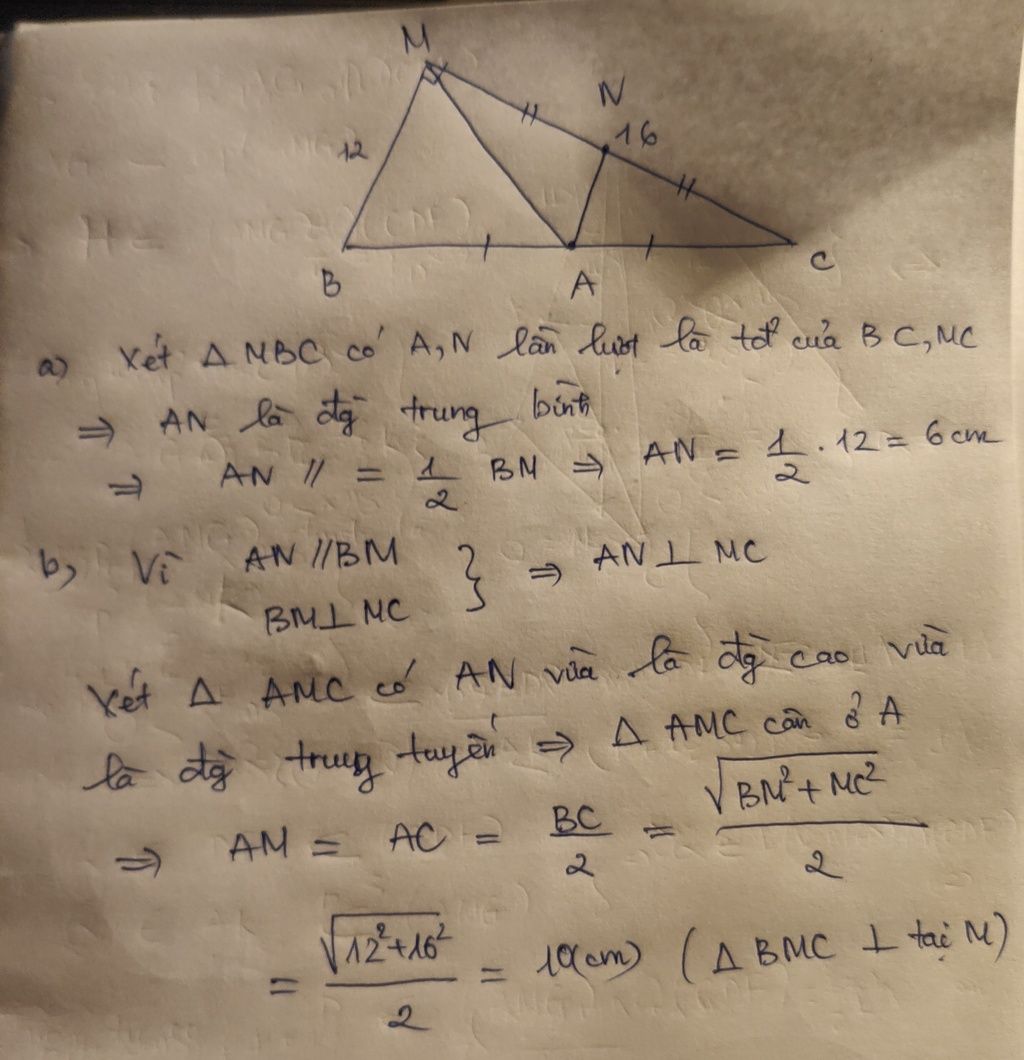 M
N
16
12
B
A
C
a) Xét Δ MBC có A, N lần lượt là tđ của BC, MC
⇒ AN là đg trung bình
⇒ AN // = 1/2 BM ⇒ AN = 1/2 . 12 = 6 cm
b, Vì AN // BM
BM ⊥ MC } ⇒ AN ⊥ MC
Xét Δ AMC có AN vừa là đg cao vừa
là đg trung tuyến ⇒ Δ AMC cân ở A
⇒ AM = AC = BC/2 = √(BM² + MC²)/2
= √(12² + 16²)/2 = 10(cm) (Δ BMC ⊥ tại M)